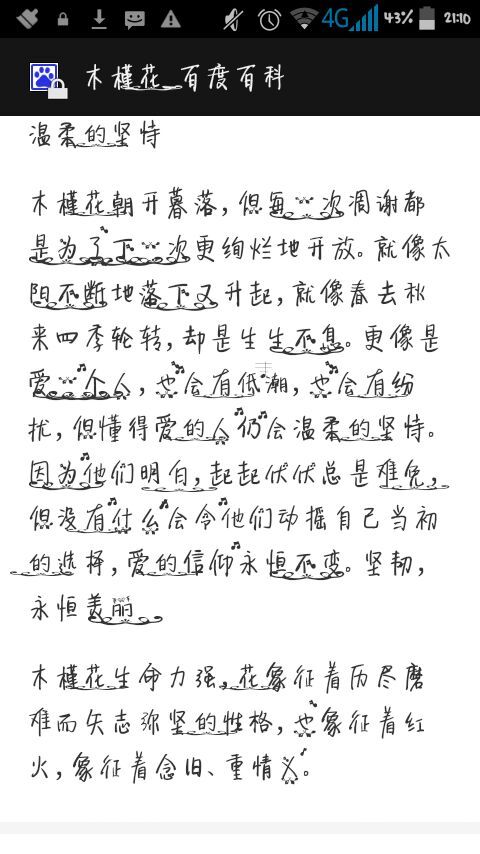 4G 43% 21:10
木槿花_百度百科
温柔的坚持
木槿花朝开暮落，但每一次凋谢都
是为了下一次更绚烂地开放。就像太
阳不断地落下又升起，就像春去秋
来四季轮转，却是生生不息。更像是
爱一个人，也会有低潮，也会有纷
扰，但懂得爱的人仍会温柔的坚持。
因为他们明白，起起伏伏总是难免，
但没有什么会令他们动摇自己当初
的选择，爱的信仰永恒不变。坚韧，
永恒美丽
木槿花生命力强，花象征着历尽磨
难而矢志弥坚的性格，也象征着红
火，象征着念旧、重情义。